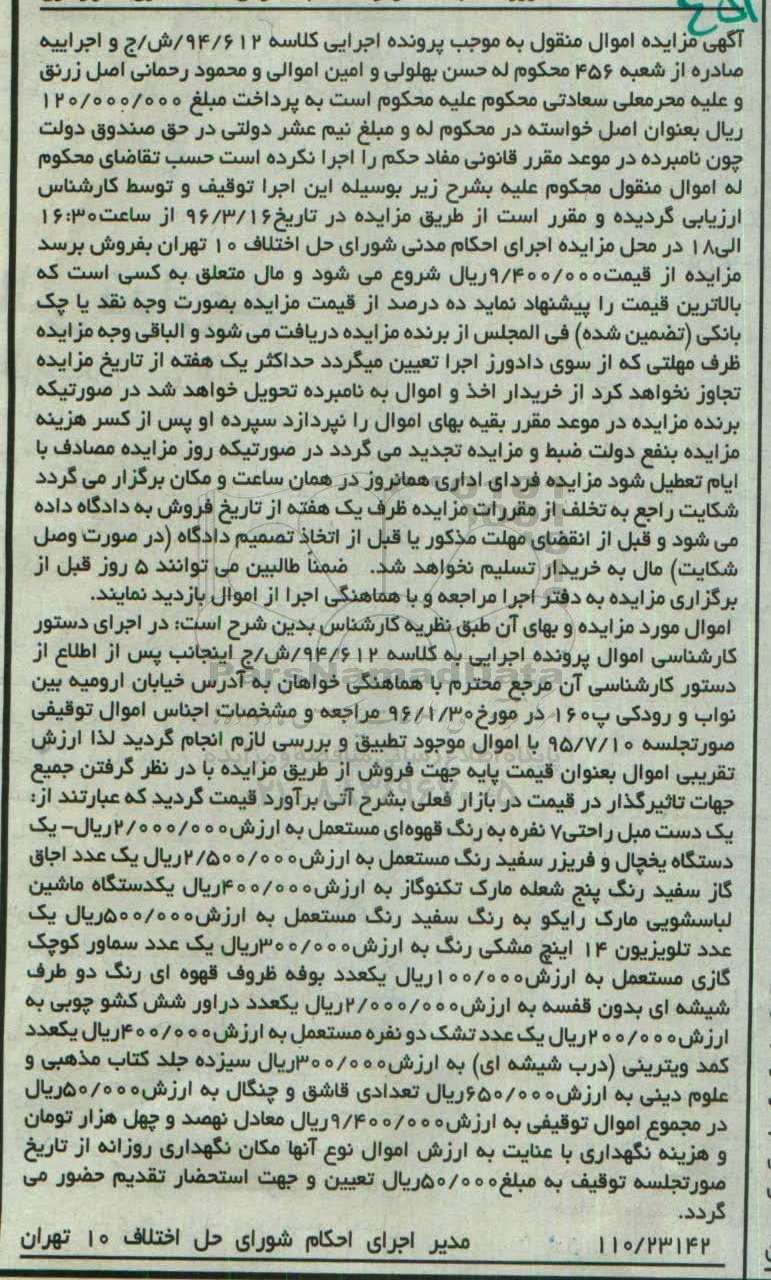 آگهی مزایده اموال منقول به موجب پرونده اجرایی کلاسه ۹۴/۶۱۲/ش/ج و اجراییه
صادره از شعبه ۴۵۶ محکوم له حسن بهلولی و امین اموالی و محمود رحمانی اصل زرنق
و علیه محرمعلی سعادتی محکوم علیه محکوم است به پرداخت مبلغ ۱۲۰/۰۰۰/۰۰۰
ریال بعنوان اصل خواسته در محکوم له و مبلغ نیم عشر دولتی در حق صندوق دولت
چون نامبرده در موعد مقرر قانونی مفاد حکم را اجرا نکرده است حسب تقاضای محکوم
له اموال منقول محکوم علیه بشرح زیر بوسیله این اجرا توقیف و توسط کارشناس
ارزیابی گردیده و مقرر است از طریق مزایده در تاریخ۹۶/۳/۱۶ از ساعت۱۶:۳۰
الی۱۸ در محل مزایده اجرای احکام مدنی شورای حل اختلاف ۱۰ تهران بفروش برسد
مزایده از قیمت۹/۴۰۰/۰۰۰ریال شروع می شود و مال متعلق به کسی است که
بالاترین قیمت را پیشنهاد نماید ده درصد از قیمت مزایده بصورت وجه نقد یا چک
بانکی (تضمین شده) فی المجلس از برنده مزایده دریافت می شود و الباقی وجه مزایده
ظرف مهلتی که از سوی دادورز اجرا تعیین میگردد حداکثر یک هفته از تاریخ مزایده
تجاوز نخواهد کرد از خریدار اخذ و اموال به نامبرده تحویل خواهد شد در صورتیکه
برنده مزایده در موعد مقرر بقیه بهای اموال را نپردازد سپرده او پس از کسر هزینه
مزایده بنفع دولت ضبط و مزایده تجدید می گردد در صورتیکه روز مزایده مصادف با
ایام تعطیل شود مزایده فردای اداری همانروز در همان ساعت و مکان برگزار می گردد
شکایت راجع به تخلف از مقررات مزایده ظرف یک هفته از تاریخ فروش به دادگاه داده
می شود و قبل از انقضای مهلت مذکور یا قبل از اتخاذ تصمیم دادگاه (در صورت وصل
شکایت) مال به خریدار تسلیم نخواهد شد. ضمناً طالبین می توانند ۵ روز قبل از
برگزاری مزایده به دفتر اجرا مراجعه و با هماهنگی اجرا از اموال بازدید نمایند.
اموال مورد مزایده و بهای آن طبق نظریه کارشناس بدین شرح است: در اجرای دستور
کارشناسی اموال پرونده اجرایی به کلاسه ۹۴/۶۱۲/ش/ج اینجانب پس از اطلاع از
دستور کارشناسی آن مرجع محترم با هماهنگی خواهان به آدرس خیابان ارومیه بین
نواب و رودکی پ۱۶۰ در مورخ۹۶/۱/۳۰ مراجعه و مشخصات اجناس اموال توقیفی
صورتجلسه ۹۵/۷/۱۰ با اموال موجود تطبیق و بررسی لازم انجام گردید لذا ارزش
تقریبی اموال بعنوان قیمت پایه جهت فروش از طریق مزایده با در نظر گرفتن جمیع
جهات تاثیرگذار در قیمت در بازار فعلی بشرح آتی برآورد قیمت گردید که عبارتند از:
یک دست مبل راحتی۷ نفره به رنگ قهوه‌ای مستعمل به ارزش۲/۰۰۰/۰۰۰ریال- یک
دستگاه یخچال و فریزر سفید رنگ مستعمل به ارزش۲/۵۰۰/۰۰۰ریال یک عدد اجاق
گاز سفید رنگ پنج شعله مارک تکنوگاز به ارزش۴۰۰/۰۰۰ریال یکدستگاه ماشین
لباسشویی مارک رایکو به رنگ سفید رنگ مستعمل به ارزش۵۰۰/۰۰۰ریال یک
عدد تلویزیون ۱۴ اینچ مشکی رنگ به ارزش۳۰۰/۰۰۰ریال یک عدد سماور کوچک
گازی مستعمل به ارزش۱۰۰/۰۰۰ریال یکعدد بوفه ظروف قهوه ای رنگ دو طرف
شیشه ای بدون قفسه به ارزش۲/۰۰۰/۰۰۰ریال یکعدد دراور شش کشو چوبی به
ارزش۲۰۰/۰۰۰ریال یک عدد تشک دو نفره مستعمل به ارزش۴۰۰/۰۰۰ریال یکعدد
کمد ویترینی (درب شیشه ای) به ارزش۳۰۰/۰۰۰ریال سیزده جلد کتاب مذهبی و
علوم دینی به ارزش۶۵۰/۰۰۰ریال تعدادی قاشق و چنگال به ارزش۵۰/۰۰۰ریال
در مجموع اموال توقیفی به ارزش۹/۴۰۰/۰۰۰ریال معادل نهصد و چهل هزار تومان
و هزینه نگهداری با عنایت به ارزش اموال نوع آنها مکان نگهداری روزانه از تاریخ
صورتجلسه توقیف به مبلغ۵۰/۰۰۰ریال تعیین و جهت استحضار تقدیم حضور می
گردد.
۱۱۰/۲۳۱۴۲ مدیر اجرای احکام شورای حل اختلاف ۱۰ تهران